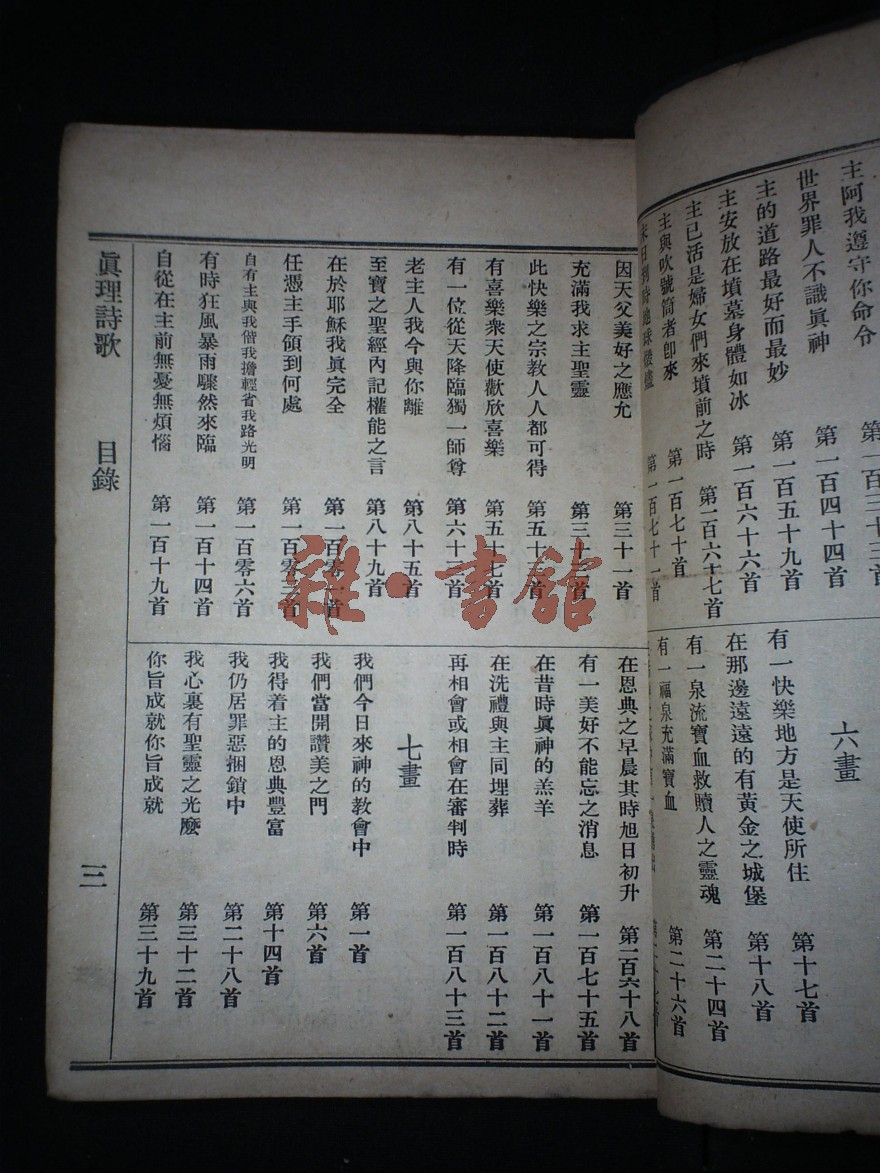 主阿我遵守你命令
世界罪人不識眞神 第一百四十四首
主的道路最好而最妙 第一百五十九首
主安放在墳墓身體如冰 第一百六十六首
主已活是婦女們來墳前之時 第一百六十七首
主與吹號筒者卽來 第一百七十首
第一百七十一首
六畫
有一快樂地方是天使所住 第十七首
在那邊遠遠的有黃金之城堡 第十八首
有一泉流寶血救贖人之靈魂 第二十四首
有一福泉充滿寶血 第二十六首
因天父美好之應允 第三十一首
充滿我求主聖靈
此快樂之宗教人人都可得
有喜樂衆天使歡欣喜樂
有一位從天降臨獨一師尊
老主人我今與你離 第八十五首
至寶之聖經內記權能之言 第八十九首
在於耶穌我眞完全
任憑主手領到何處
自有主與我偕我擔輕省我路光明 第一百零六首
有時狂風暴雨驟然來臨 第一百十四首
自從在主前無憂無煩惱 第一百十九首
在恩典之早晨其時旭日初升 第一百六十八首
有一美好不能忘之消息 第一百七十五首
在昔時眞神的羔羊 第一百八十一首
在洗禮與主同埋葬 第一百八十二首
再相會或相會在審判時 第一百八十三首
七畫
我們今日來神的教會中 第一首
我們當開讚美之門 第六首
我得着主的恩典豐富 第十四首
我仍居罪惡捆鎖中 第二十八首
我心裏有聖靈之光麽 第三十二首
你旨成就你旨成就 第三十九首
眞理詩歌 目錄 三
雜·書館